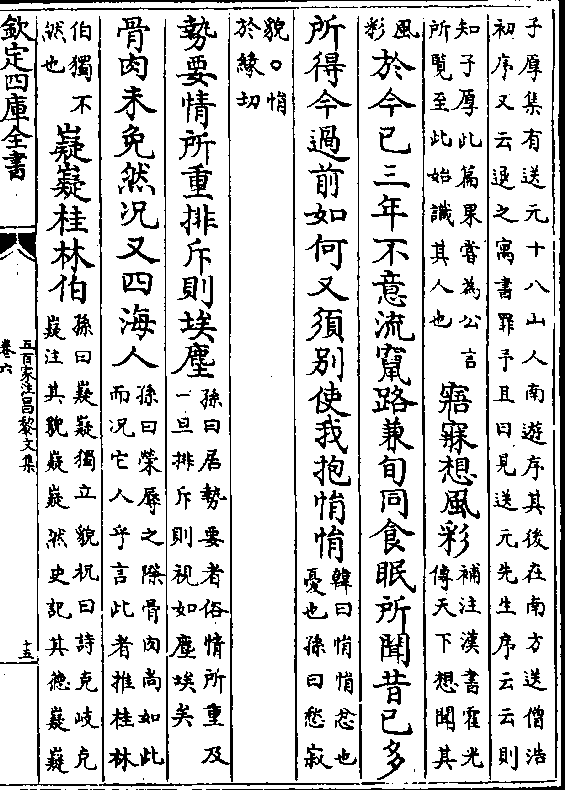 子厚集有送元十八山人南遊序其後在南方送僧浩
初序又云退之寓書罪予且曰見送元先生序云云則
知子厚此篇果嘗為公言
所覧至此始識其人也
寤寐想風彩
補注漢書霍光
傳天下想聞其
風
彩
於今已三年不意流竄路兼旬同食眠所聞昔已多
所得今過前如何又須別使我抱悁悁
韓曰悁悁忿也
憂也孫曰愁寂
貌○悁
於緣切
勢要情所重排斥則埃塵
孫曰居勢要者俗情所重及
一旦排斥則視如塵埃矣
骨肉未免然况又四海人
孫曰榮辱之際骨肉尚如此
而况它人乎言此者推桂林
伯獨不
然也
嶷嶷桂林伯
孫曰嶷嶷獨立貌祝曰詩克岐克
嶷注其貌嶷嶷然史記其德嶷嶷
欽定四庫全書
五百家注昌黎文集
卷六
十五